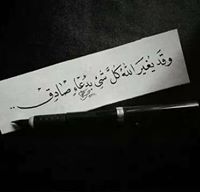 وقد يُغيّر الله كلّ شيءٍ بدعاءٍ صادق..